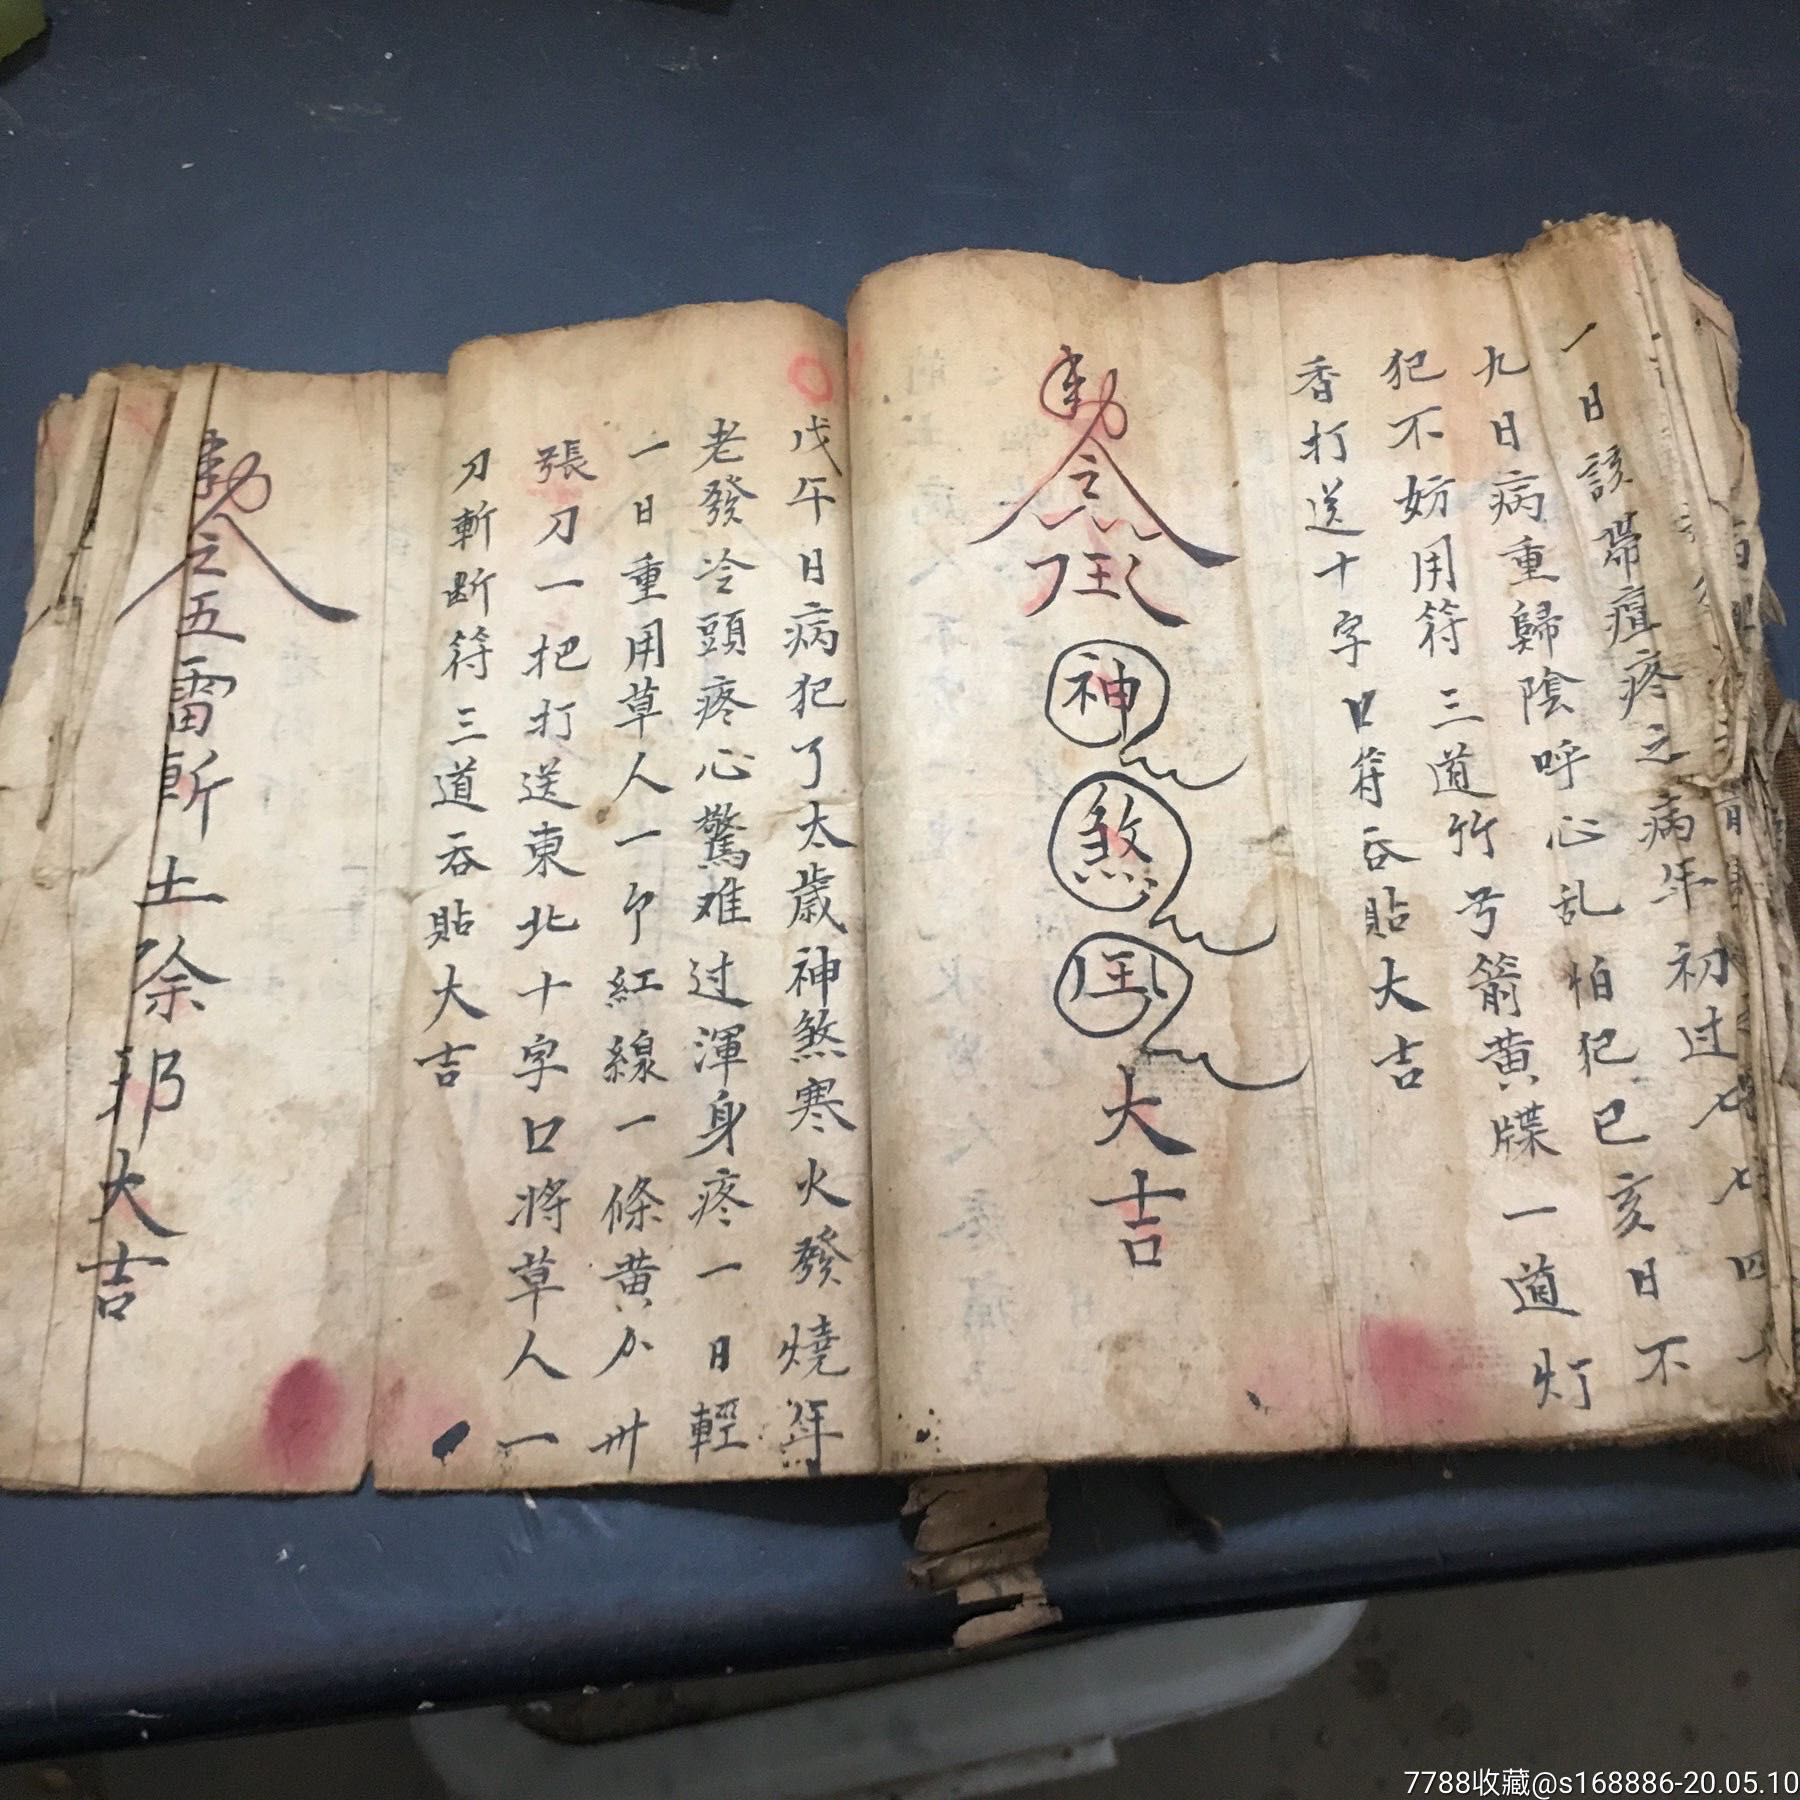 一日該帶瘟疼之病年初过七七四
九日病重歸陰呼心乱怕犯已亥日不
犯不妨用符三道竹弓箭黄牒一道灯
香打送十字口符吞貼大吉
勅令
神
煞
大吉
戊午日病犯了太歲神煞寒火發燒年
老發冷頭疼心驚难过渾身疼一日輕
一日重用草人一个紅線一條黄分卅
張刀一把打送東北十字口將草人一
刀斬断符三道吞貼大吉
勅令五雷斬土除邪大吉
7788收藏@s168886-20.05.10